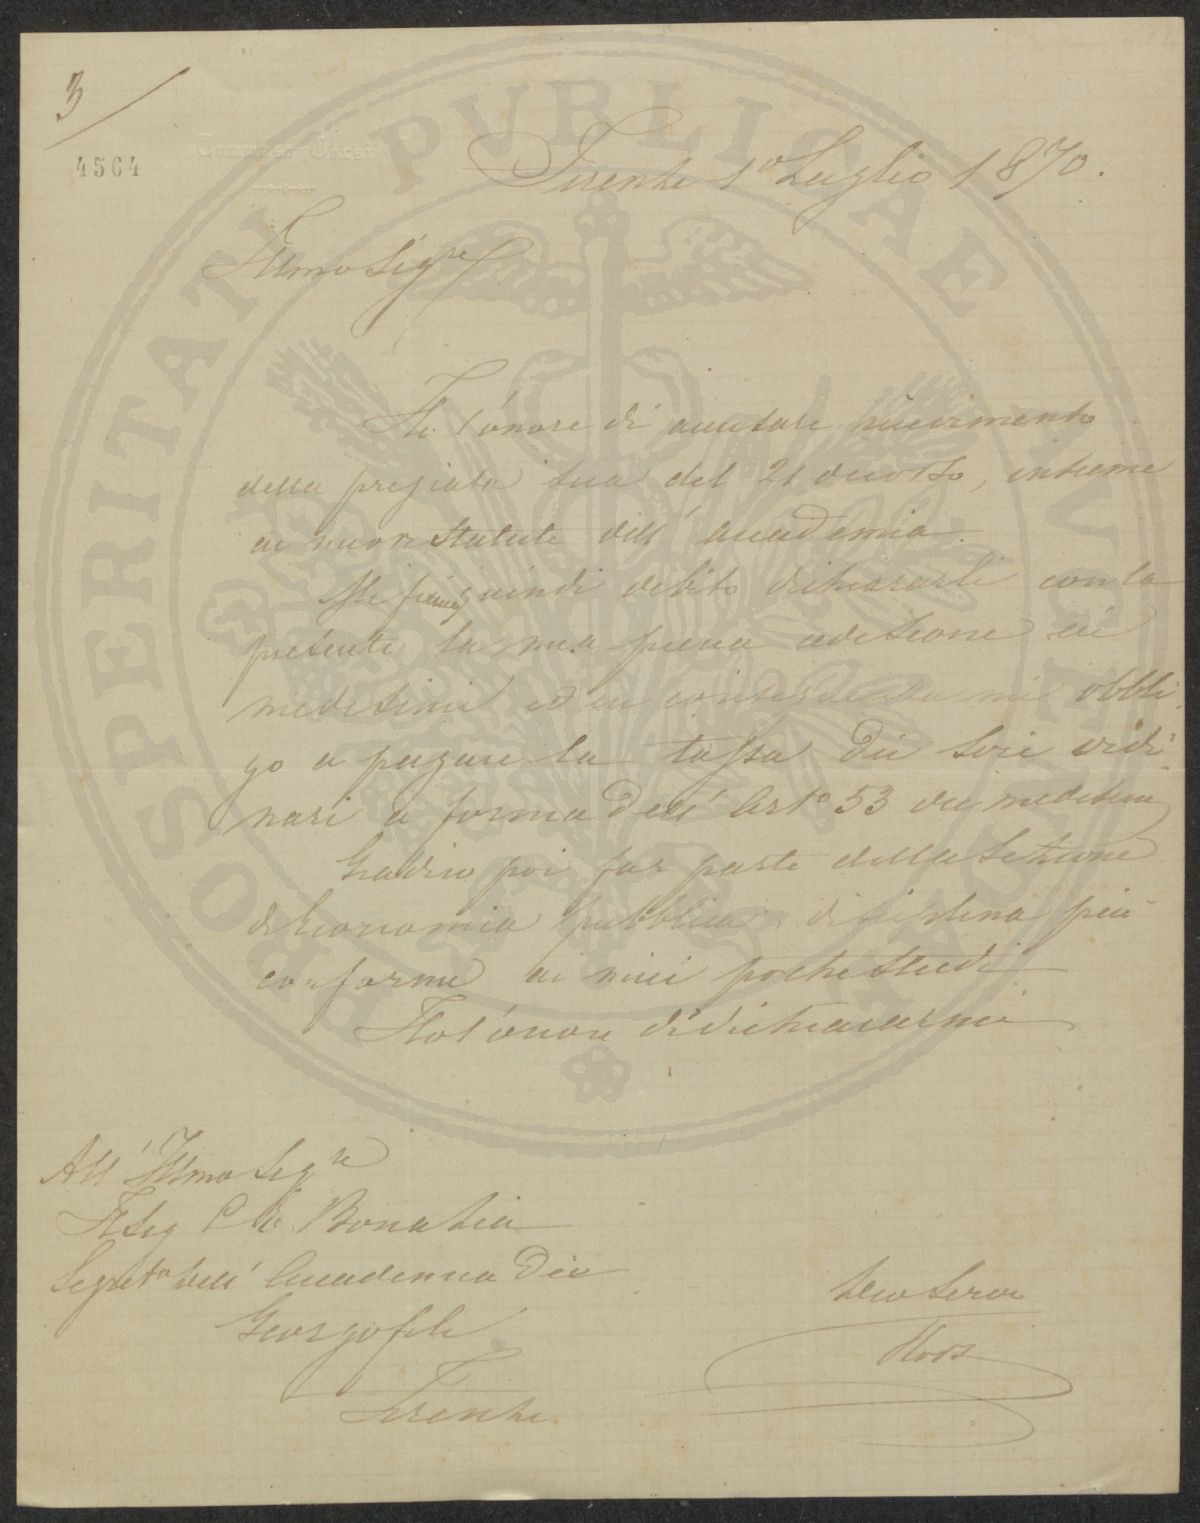 3
4564
Firenze 1º Luglio 1870.
Illmo Sigre
Ho l'onore di accusare ricevimento
della pregiata sua del 21 decorso, insieme
ai nuovi statuti dell'accademia.
Mi quindi debito dichiararli con la
presente la mia piena adesione ai
medesimi ed in conseguenza mi obbli
go a pagare la tassa dei soci ordi
nari a forma dell' Arto 53 dei medesimi
Gradirei poi far parte della Sezione
di Economia pubblica disciplina più
conforme ai miei pochi studi
Ho l'onore di dichiararmi
All' Illmo Sigre
Il Sig Bonatia
Segreto dell' Accademia Dei
Georgofili
Firenze
Servo
PROSPERITATI PUBLICAE AUGENDAE